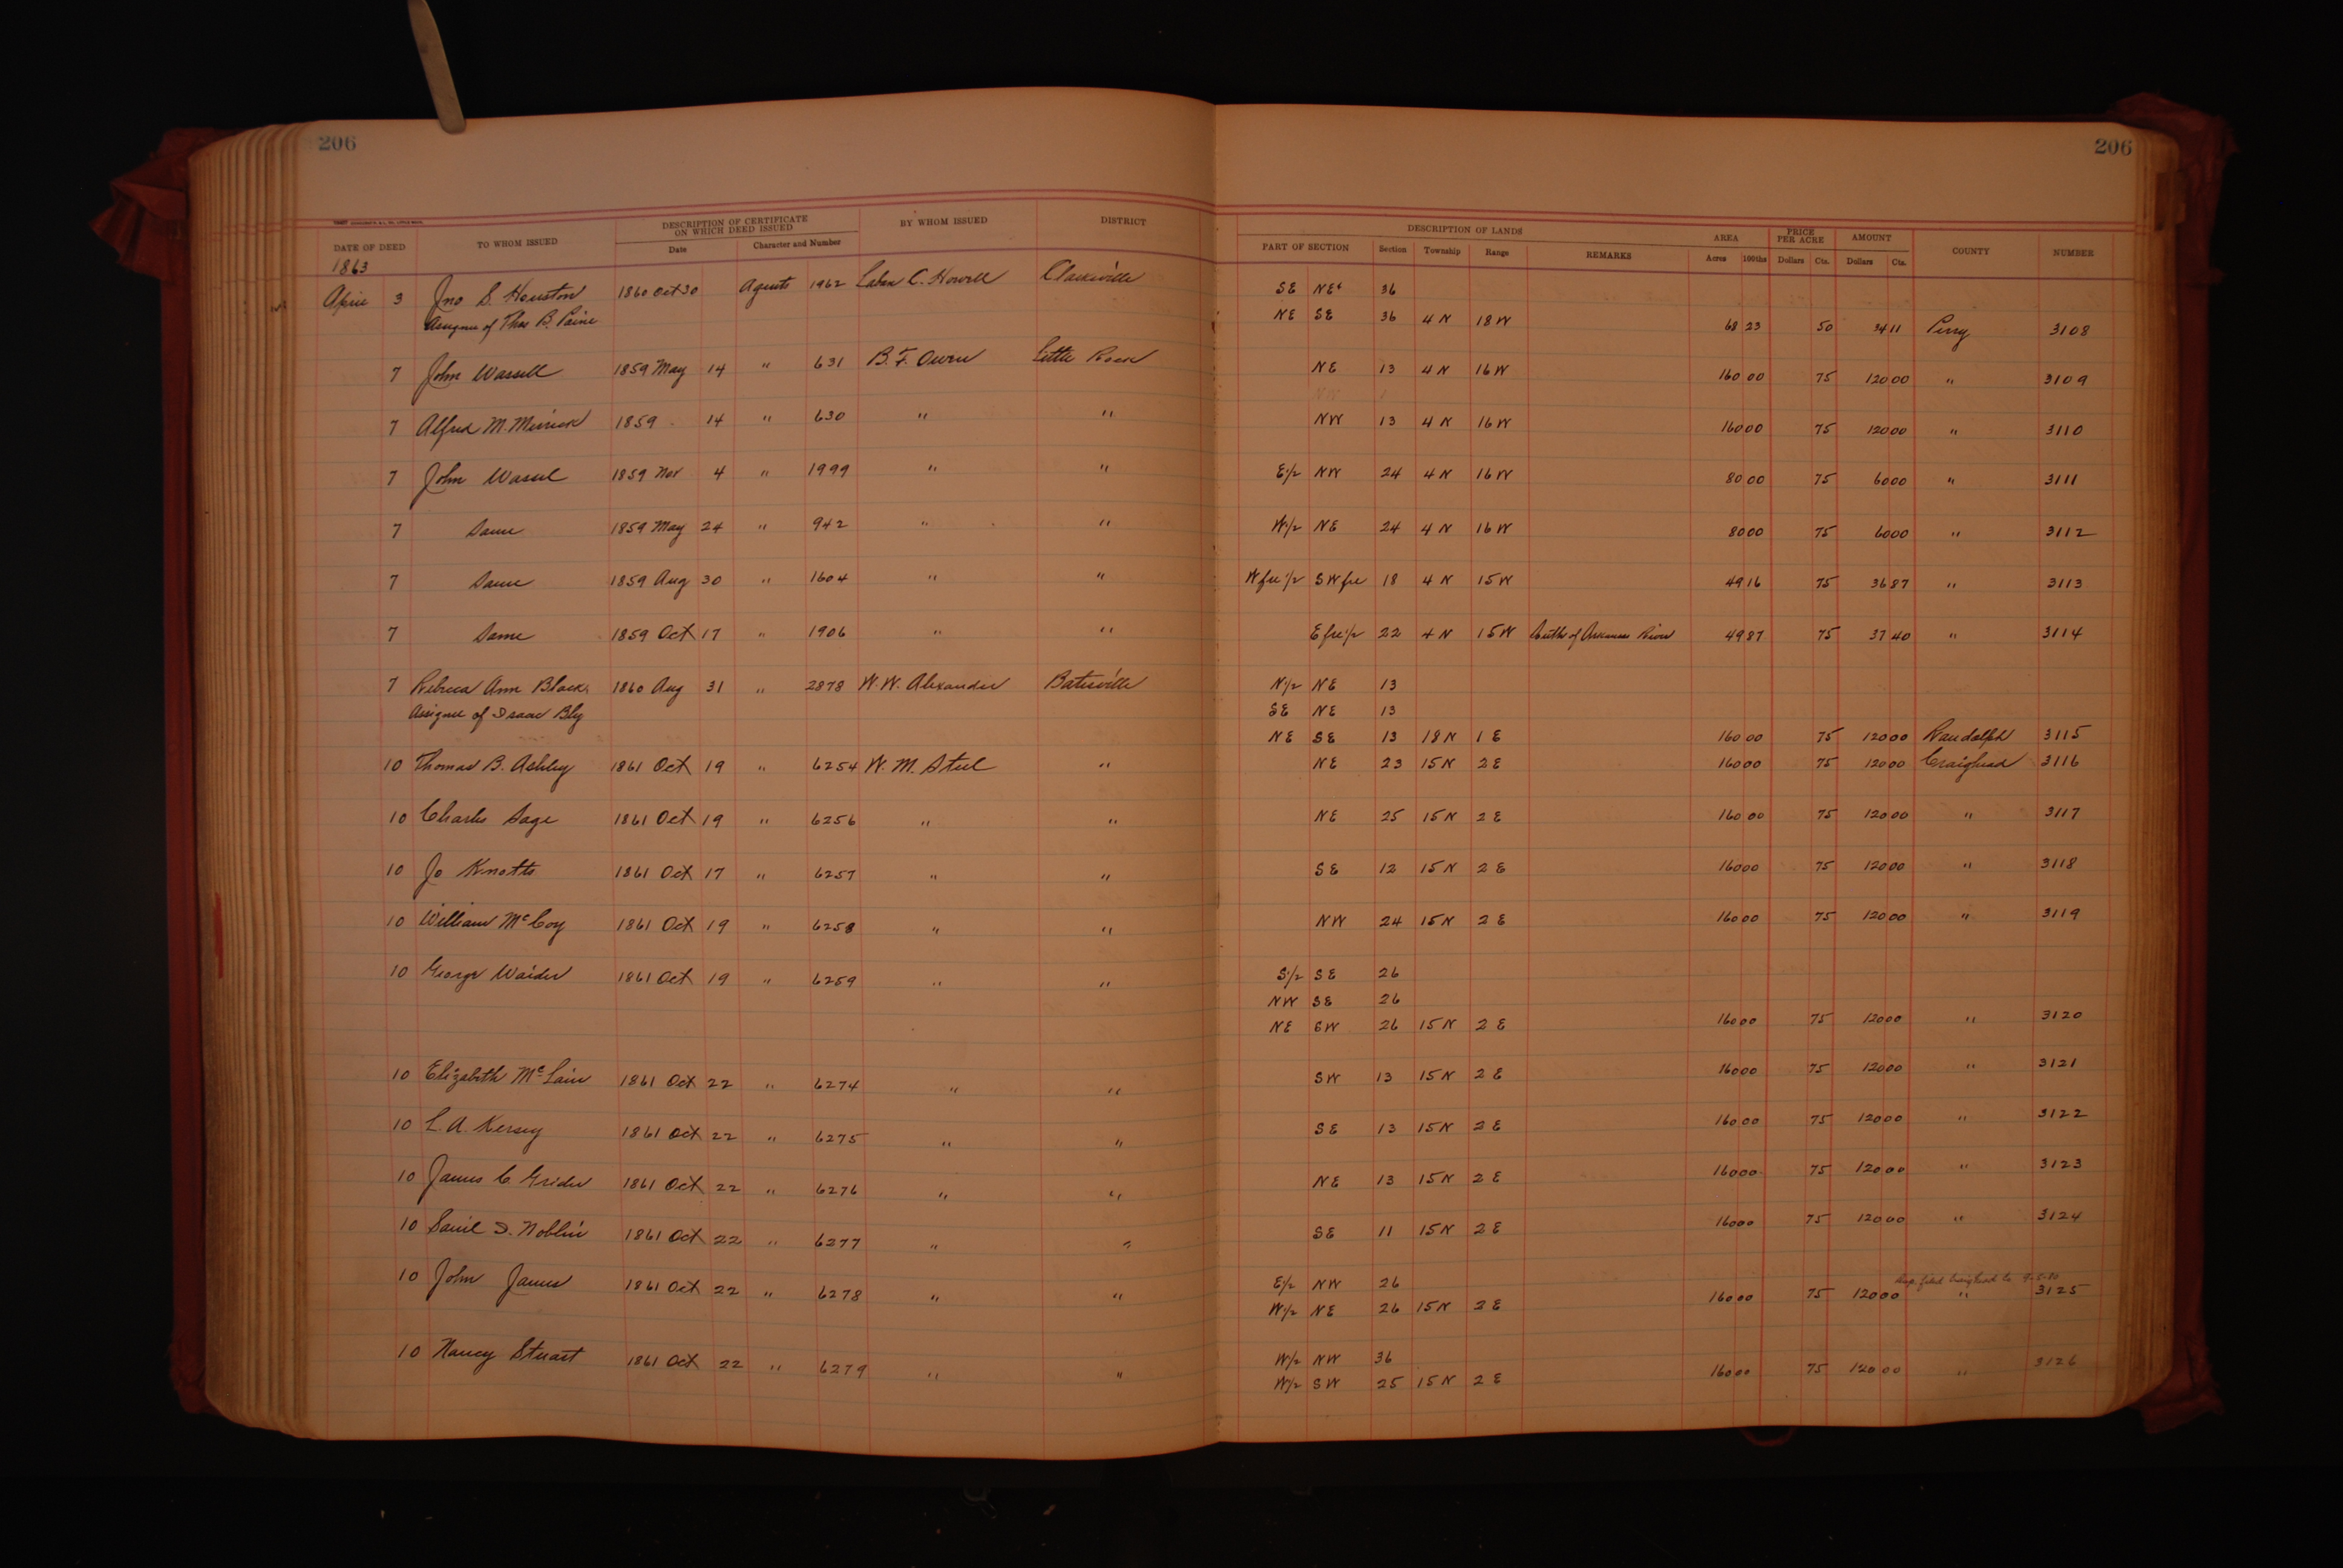 206
206
DATE OF DEED TO WHOM ISSUED DESCRIPTION OF CERTIFICATE ON WHICH DEED ISSUED BY WHOM ISSUED DISTRICT DESCRIPTION OF LANDS AREA PRICE PER ACRE AMOUNT COUNTY NUMBER
Date Character and Number PART OF SECTION Section Township Range REMARKS Acres 100ths Dollars Cts. Dollars Cts.
1863
April 3 Jno S. Houston 1860 Oct 30 Agents 1962 Laban C. Howell Clarksville SE NE 36
Assignee of Thos B. Paine NE SE 36 4 N 18 W 68 23 50 34 11 Perry 3108
7 John Wassell 1859 May 14 " 631 B. F. Owen Little Rock NE 13 4 N 16 W 160 00 75 120 00 " 3109
7 Alfred M. Merrick 1859 14 " 630 " " NW 13 4 N 16 W 160 00 75 120 00 " 3110
7 John Wassel 1859 Nov 4 " 1999 " " E 1/2 NW 24 4 N 16 W 80 00 75 60 00 " 3111
7 Same 1859 May 24 " 942 " " W 1/2 NE 24 4 N 16 W 80 00 75 60 00 " 3112
7 Same 1859 Aug 30 " 1604 " " W fre 1/2 SW fre 18 4 N 15 W 49 16 75 36 87 " 3113
7 Same 1859 Oct 17 " 1906 " " E fre 1/2 22 4 N 15 W South of Arkansas River 49 87 75 37 40 " 3114
7 Rebecca Ann Black 1860 Aug 31 " 2878 W. W. Alexander Batesville N 1/2 NE 13
Assignee of Isaac Bly SE NE 13
NE SE 13 18 N 1 E 160 00 75 120 00 Randolph 3115
10 Thomas B. Ashley 1861 Oct 19 " 6254 W. M. Steel " NE 23 15 N 2 E 160 00 75 120 00 Craighead 3116
10 Charles Sage 1861 Oct 19 " 6256 " " NE 25 15 N 2 E 160 00 75 120 00 " 3117
10 Jo Knotts 1861 Oct 17 " 6257 " " SE 12 15 N 2 E 160 00 75 120 00 " 3118
10 William McCoy 1861 Oct 19 " 6258 " " NW 24 15 N 2 E 160 00 75 120 00 " 3119
10 George Waider 1861 Oct 19 " 6259 " " S 1/2 SE 26
NW SE 26
NE SW 26 15 N 2 E 160 00 75 120 00 " 3120
10 Elizabeth McLain 1861 Oct 22 " 6274 " " SW 13 15 N 2 E 160 00 75 120 00 " 3121
10 L. A. Kersey 1861 Oct 22 " 6275 " " SE 13 15 N 2 E 160 00 75 120 00 " 3122
10 James C. Grider 1861 Oct 22 " 6276 " " NE 13 15 N 2 E 160 00 75 120 00 " 3123
10 Saml I. Noblin 1861 Oct 22 " 6277 " " SE 11 15 N 2 E 160 00 75 120 00 " 3124
10 John James 1861 Oct 22 " 6278 " " E 1/2 NW 26
W 1/2 NE 26 15 N 2 E 160 00 75 120 00 " 3125
10 Nancy Stuart 1861 Oct 22 " 6279 " " W 1/2 NW 36
W 1/2 SW 25 15 N 2 E 160 00 75 120 00 " 3126